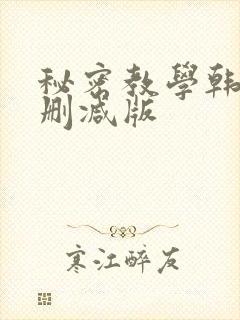 秘密教學韩
删减版
寒江醉友